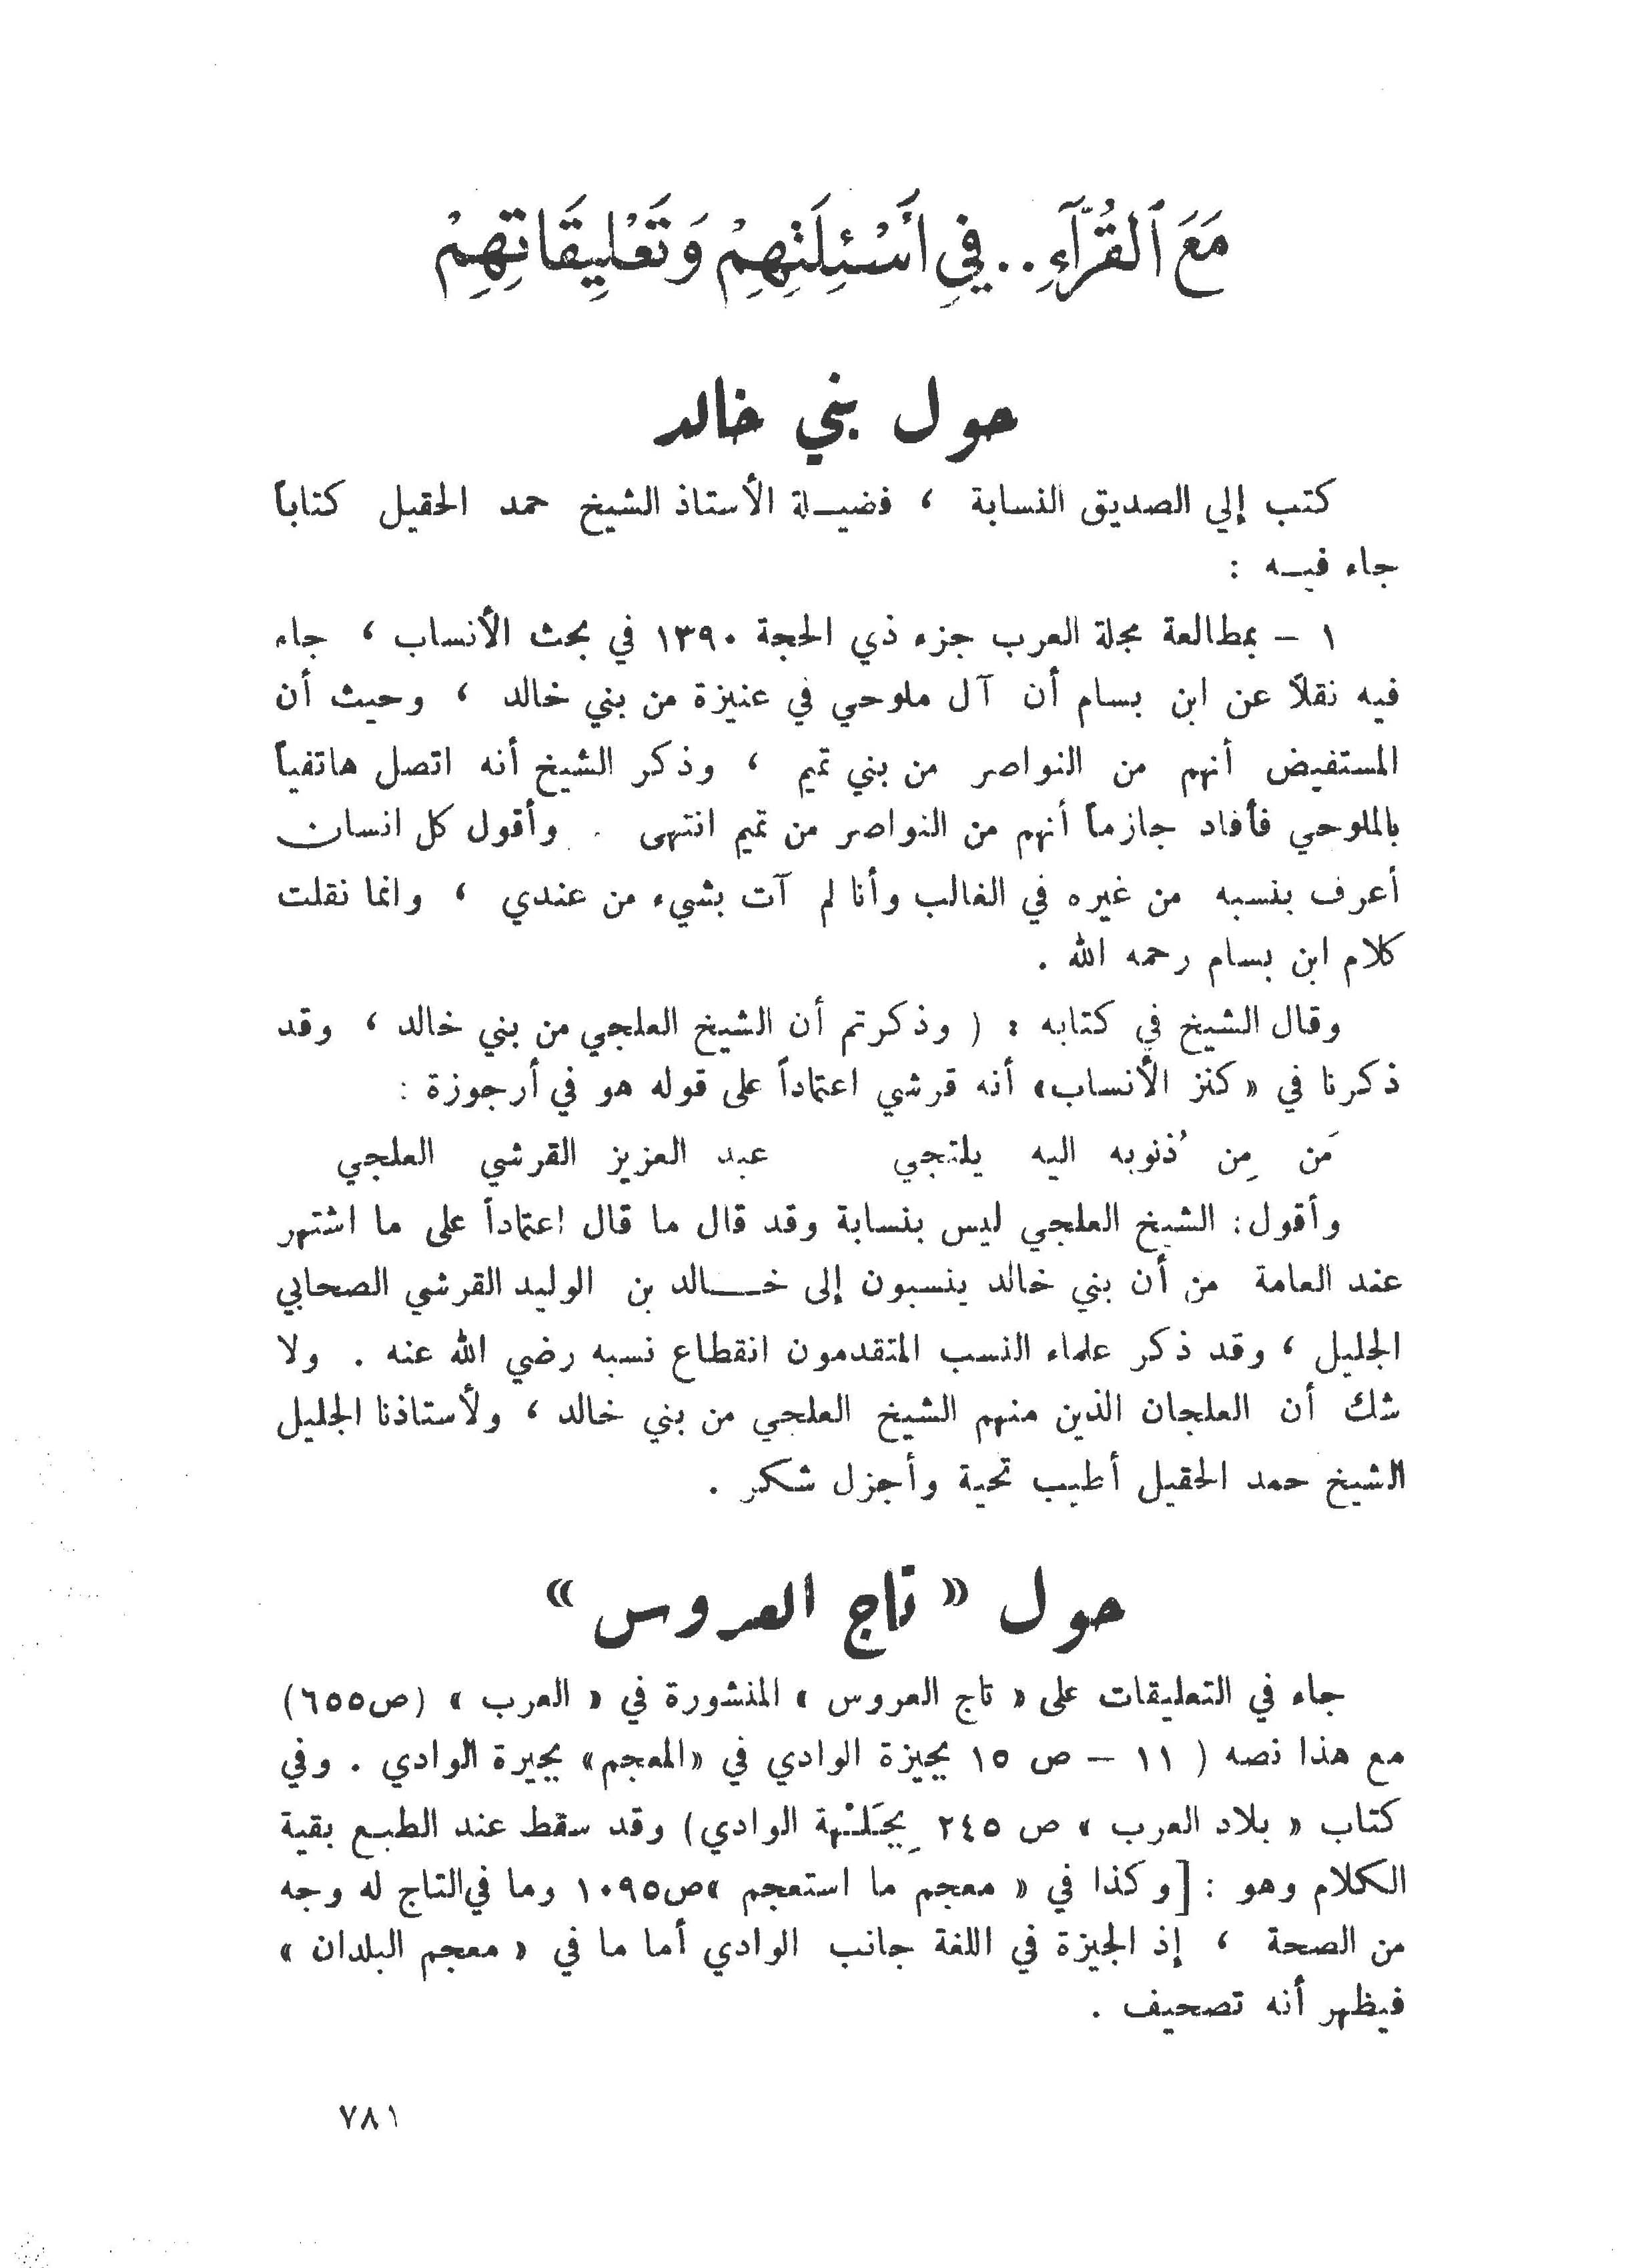 مَعَ ٱلقُرَّآءِ.. في أَسْئِلَتِهِمْ وَتَعْلِيقَاتِهِمْ
حول بني خالد
كتب إلي الصديق النسابة ، فضيلة الأستاذ الشيخ حمد الحقيل كتاباً
جاء فيه :
١ – بمطالعة مجلة العرب جزء ذي الحجة ١٣٩٠ في بحث الأنساب ، جاء
فيه نقلاً عن ابن بسام أن آل ملوحي في عنيزة من بني خالد ، وحيث أن
المستفيض أنهم من النواصر من بني تميم ، وذكر الشيخ أنه اتصل هاتفياً
بالملوحي فأفاد جازماً أنهم من النواصر من تميم انتهى . وأقول كل انسان
أعرف بنسبه من غيره في الغالب وأنا لم آت بشيء من عندي ، وانما نقلت
كلام ابن بسام رحمه الله .
وقال الشيخ في كتابه : ( وذكرتم أن الشيخ العلجي من بني خالد ، وقد
ذكرنا في «كنز الأنساب» أنه قرشي اعتماداً على قوله هو في أرجوزة :
مَن مِن ذُنوبه اليه يلتجي عبد العزيز القرشي العلجي
وأقول : الشيخ العلجي ليس بنسابة وقد قال ما قال اعتماداً على ما اشتهر
عند العامة من أن بني خالد ينسبون إلى خالد بن الوليد القرشي الصحابي
الجليل ، وقد ذكر علماء النسب المتقدمون انقطاع نسبه رضي الله عنه . ولا
شك أن العلجان الذين منهم الشيخ العلجي من بني خالد ، ولأستاذنا الجليل
الشيخ حمد الحقيل أطيب تحية وأجزل شكر .
حول « تاج العروس »
جاء في التعليقات على « تاج العروس » المنشورة في « العرب » (ص٦٥٥)
مع هذا نصه ( ١١ – ص ١٥ بجيزة الوادي في «المعجم» بجيرة الوادي . وفي
كتاب « بلاد العرب » ص ٢٤٥ بِجَلْهة الوادي) وقد سقط عند الطبع بقية
الكلام وهو : [وكذا في « معجم ما استعجم »ص١٠٩٥ وما في التاج له وجه
من الصحة ، إذ الجيزة في اللغة جانب الوادي أما ما في « معجم البلدان »
فيظهر أنه تصحيف .
٧٨١